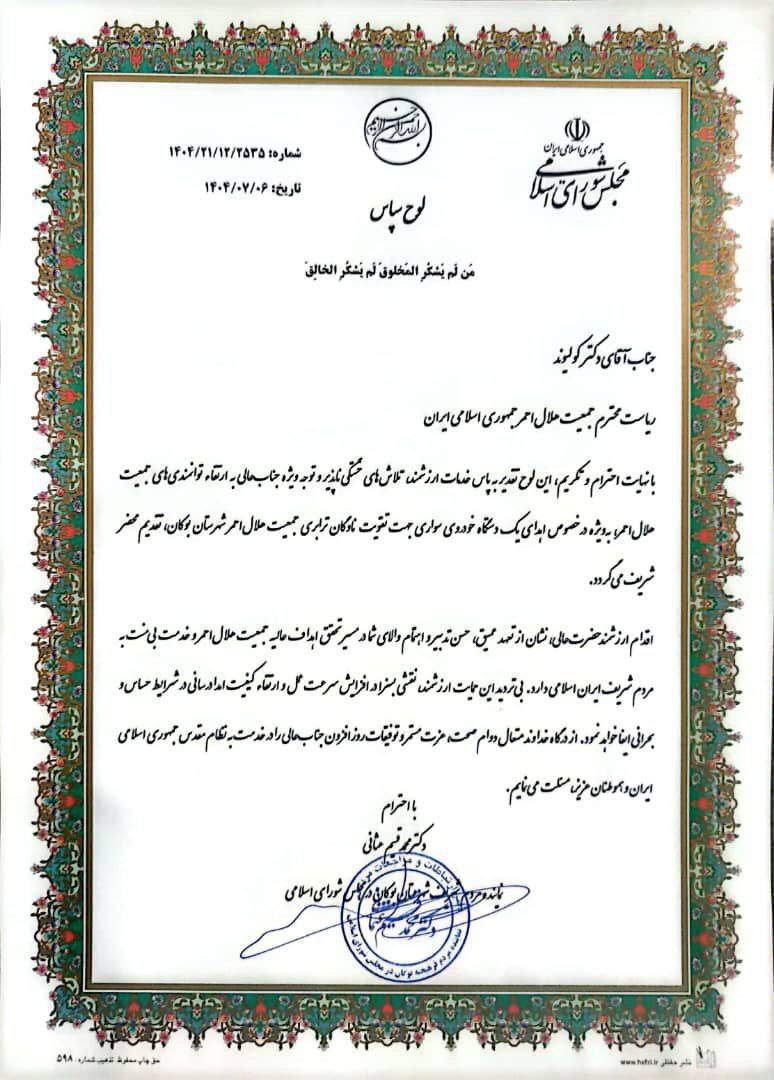 بسم الله الرحمن الرحیم
جمهوری اسلامی ایران
مجلس شورای اسلامی
شماره: ۱۴۰۴/۲۱/۱۲/۲۵۳۵
تاریخ: ۱۴۰۴/۰۷/۰۶
لوح سپاس
مَن لَم يَشكُرِ المَخلوقَ لَم يَشكُرِ الخالِقَ
جناب آقای دکتر کولیوند
ریاست محترم جمعیت هلال احمر جمهوری اسلامی ایران
با نهایت احترام و تکریم، این لوح تقدیر به پاس خدمات ارزشمند، تلاش‌های خستگی ناپذیر و توجه ویژه جناب‌عالی به ارتقاء توانمندی‌های جمعیت
هلال احمر، به‌ویژه در خصوص اهدای یک دستگاه خودروی سواری جهت تقویت ناوگان ترابری جمعیت هلال احمر شهرستان بوکان، تقدیم محضر
شریف می گردد.
اقدام ارزشمند حضرت‌عالی، نشان از تعهد عمیق، حسن تدبیر و اهتمام والای شما در مسیر تحقق اهداف عالیه جمعیت هلال احمر و خدمت بی منت به
مردم شریف ایران اسلامی دارد. بی‌تردید این حمایت ارزشمند، نقشی بسزا در افزایش سرعت عمل و ارتقاء کیفیت امدادرسانی در شرایط حساس و
بحرانی ایفا خواهد نمود. از درگاه خداوند متعال دوام صحت، عزت مستمر و توفیقات روز افزون جناب‌عالی را در خدمت به نظام مقدس جمهوری اسلامی
ایران و هموطنان عزیز، مسئلت می نمایم.
با احترام
دکتر محمد قسیم عثمانی
نماینده مردم شریف شهرستان بوکان در مجلس شورای اسلامی
ارتباطات و مراجعات مردمی
دکتر محمد قسیم عثمانی
نماینده مردم فرهیخته بوکان در مجلس شورای اسلامی
نشر حفظی www.hefri.ir
حق چاپ محفوظ تذهیب شماره ۵۹۸